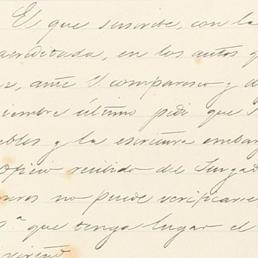 El que suscribe, con la
acreditada, en los autos q
ante V comparesco y d
iembre último pedi que s
ebles y la escritura embar
Oficio recibido del Juzgad
no puede verificarse
sª que tenga lugar el